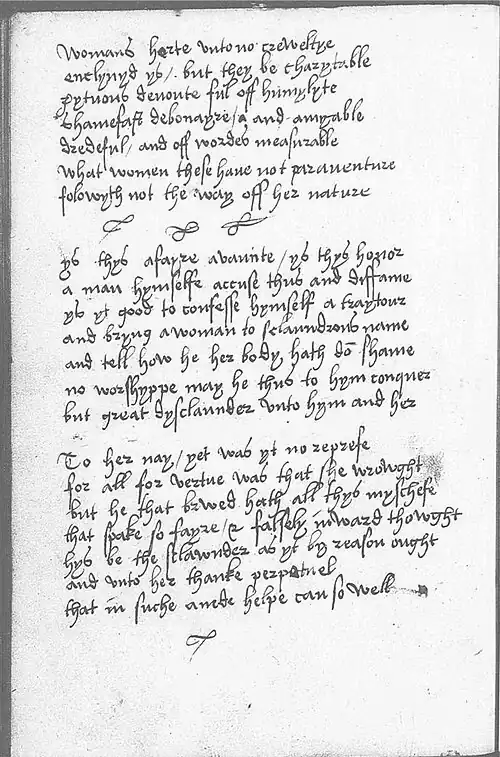 Womans herte vnto no creweltye
enclynyd ys /. but they be charytable
pytuous deuoute ful off humylyte
shamefast debonayre / a and amyable
dredeful / and off wordes measurable
what women these haue not parauenture
folowyth not the way off her nature
ys thys afayre avaunte / ys thys honor
a man hymselfe accuse thus and diffame
ys yt good to confesse hymself a traytour
and bryng a woman to sclaundrous name
and tell how he her body hath dō shame
no worshyppe may he thus to hym conquer
but great dysclaunder vnto hym and her
To her nay / yet was yt no reprefe
for all for vertue was that she wrowght
but he that brwed hath all thys myschefe
that spake so fayre / & falsely inward thowght
hys be the sclawnder as yt by reason ought
and vnto her thanke perpetuel
that in suche a nede helpe can so well